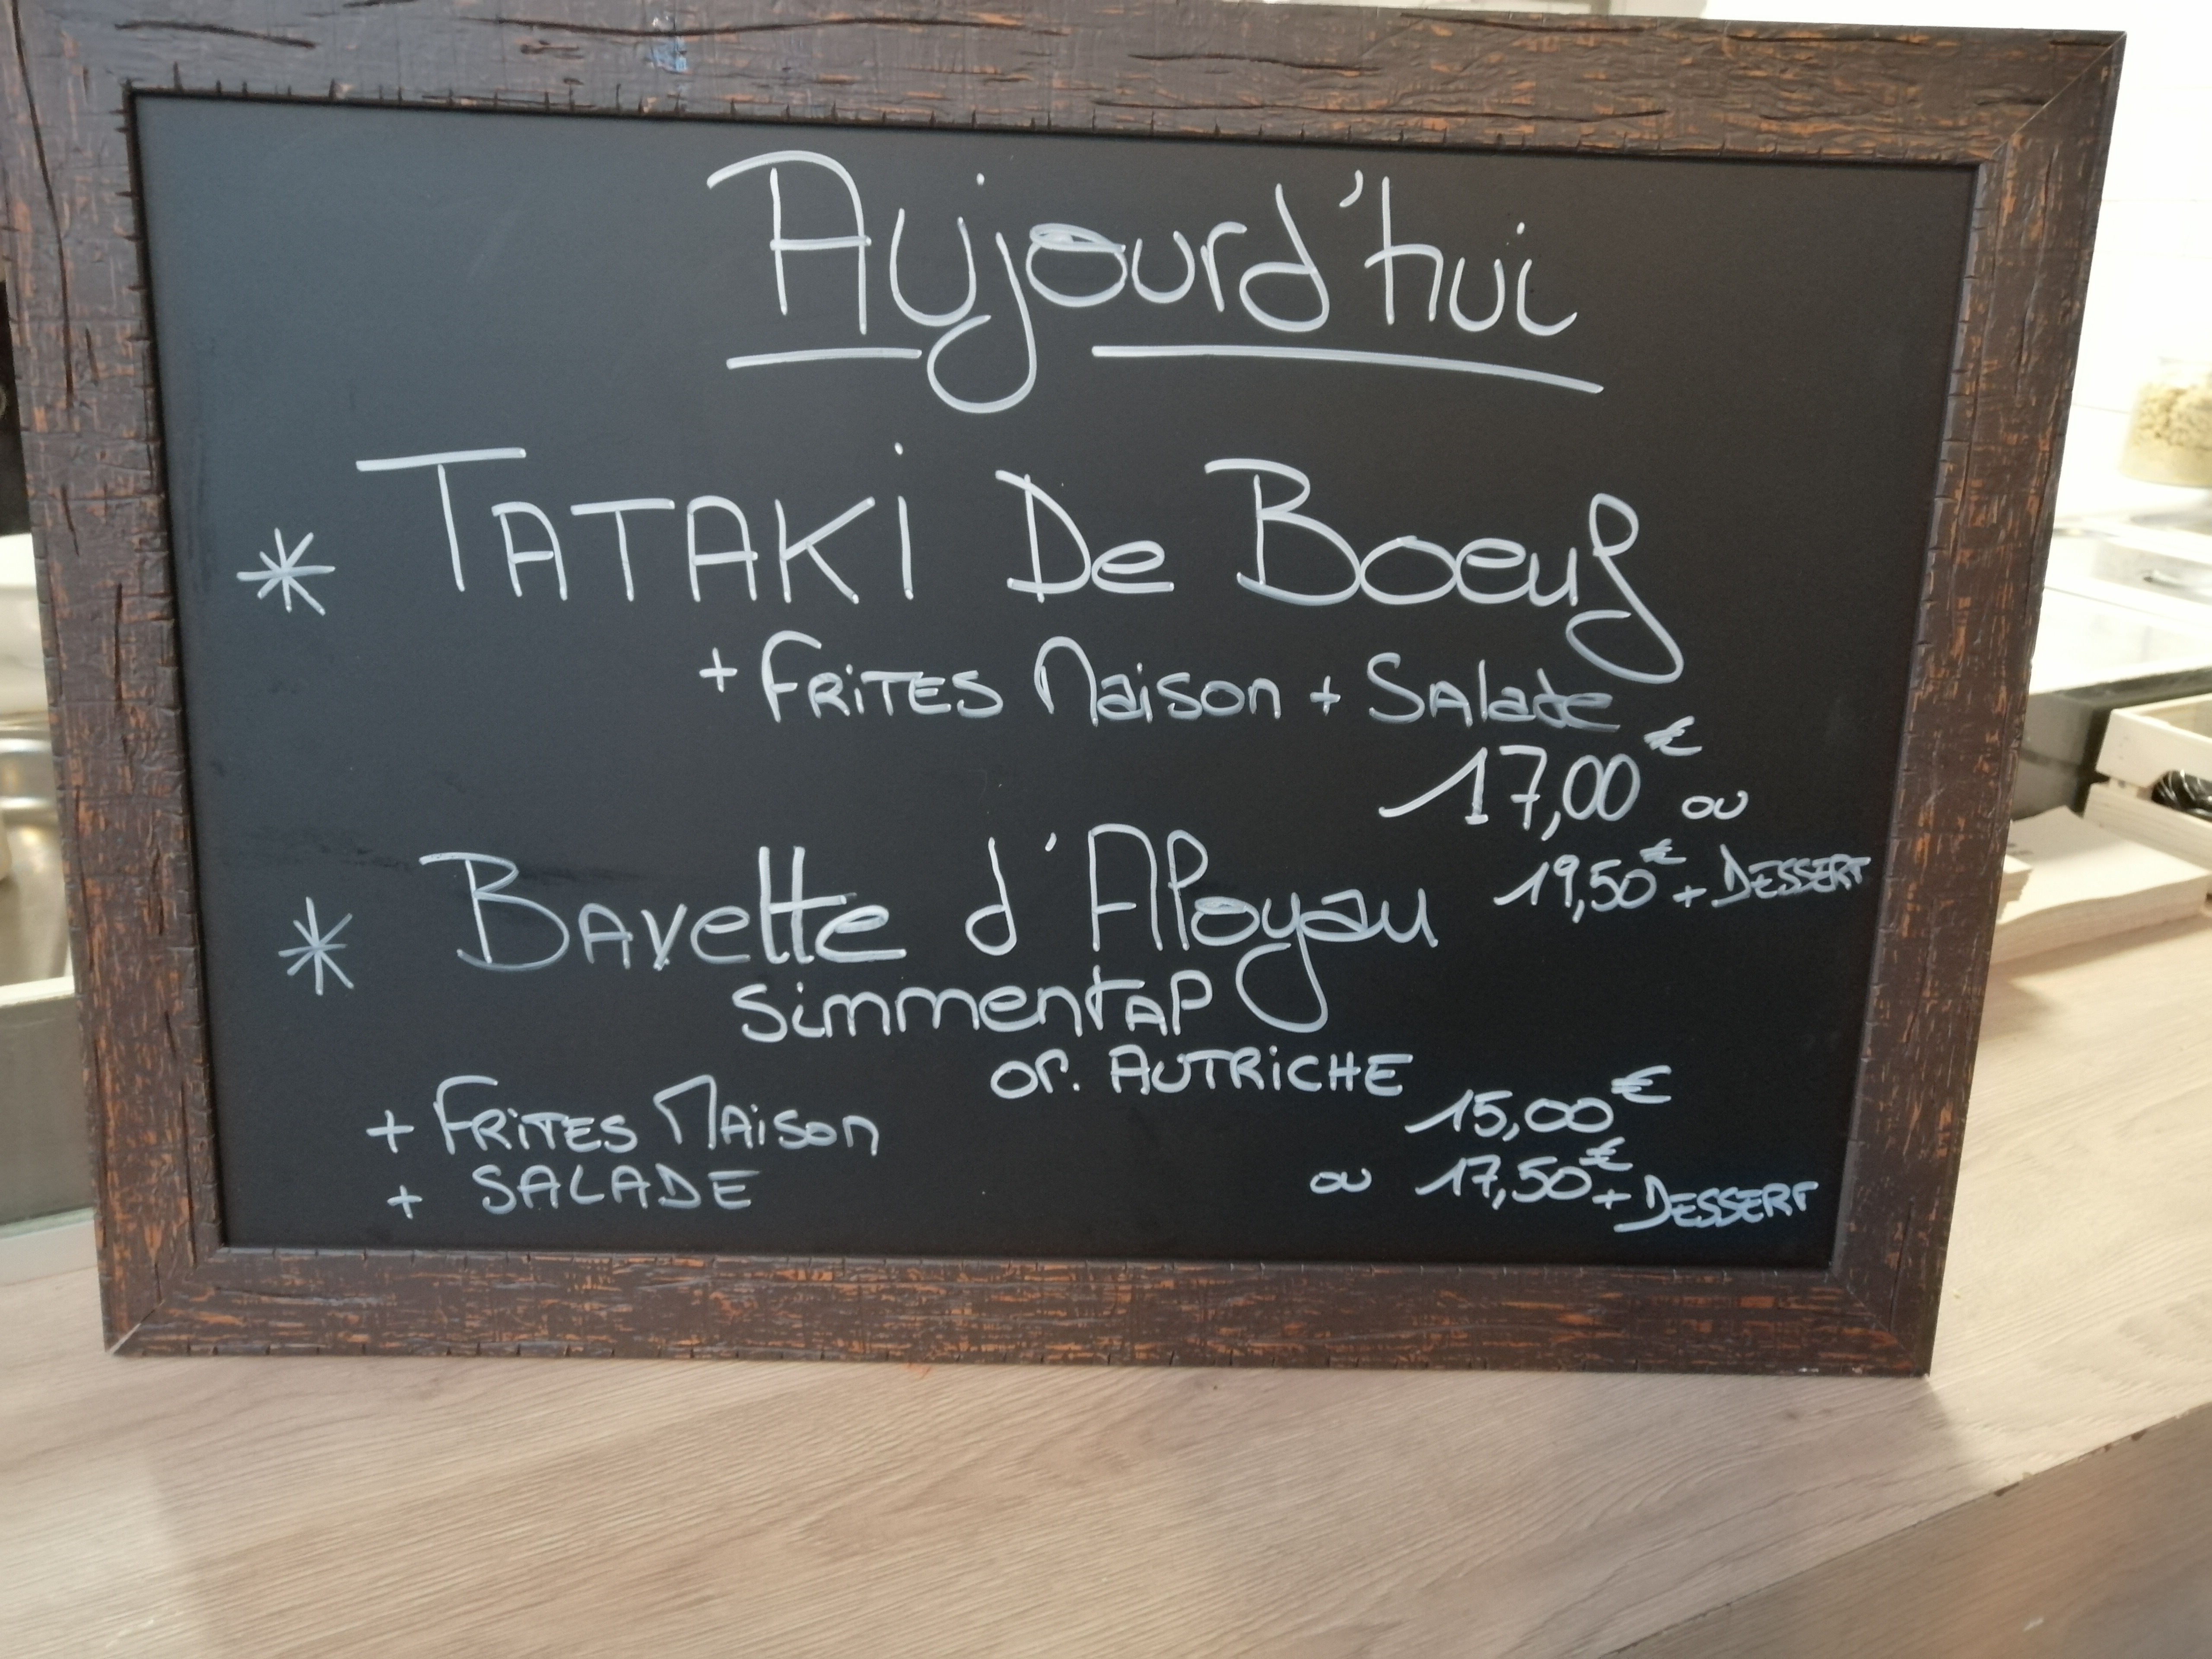 Aujourd'hui
* TATAKI De Boeuf
+ FRITES Maison + SAlade
17,00€ ou
19,50€ + DESSERT
* BAVette d'APoyau
SimmentAP
or. AUTRICHE
+ FRITES MAiSon
+ SALADE
15,00€
ou 17,50€ + DESSERT